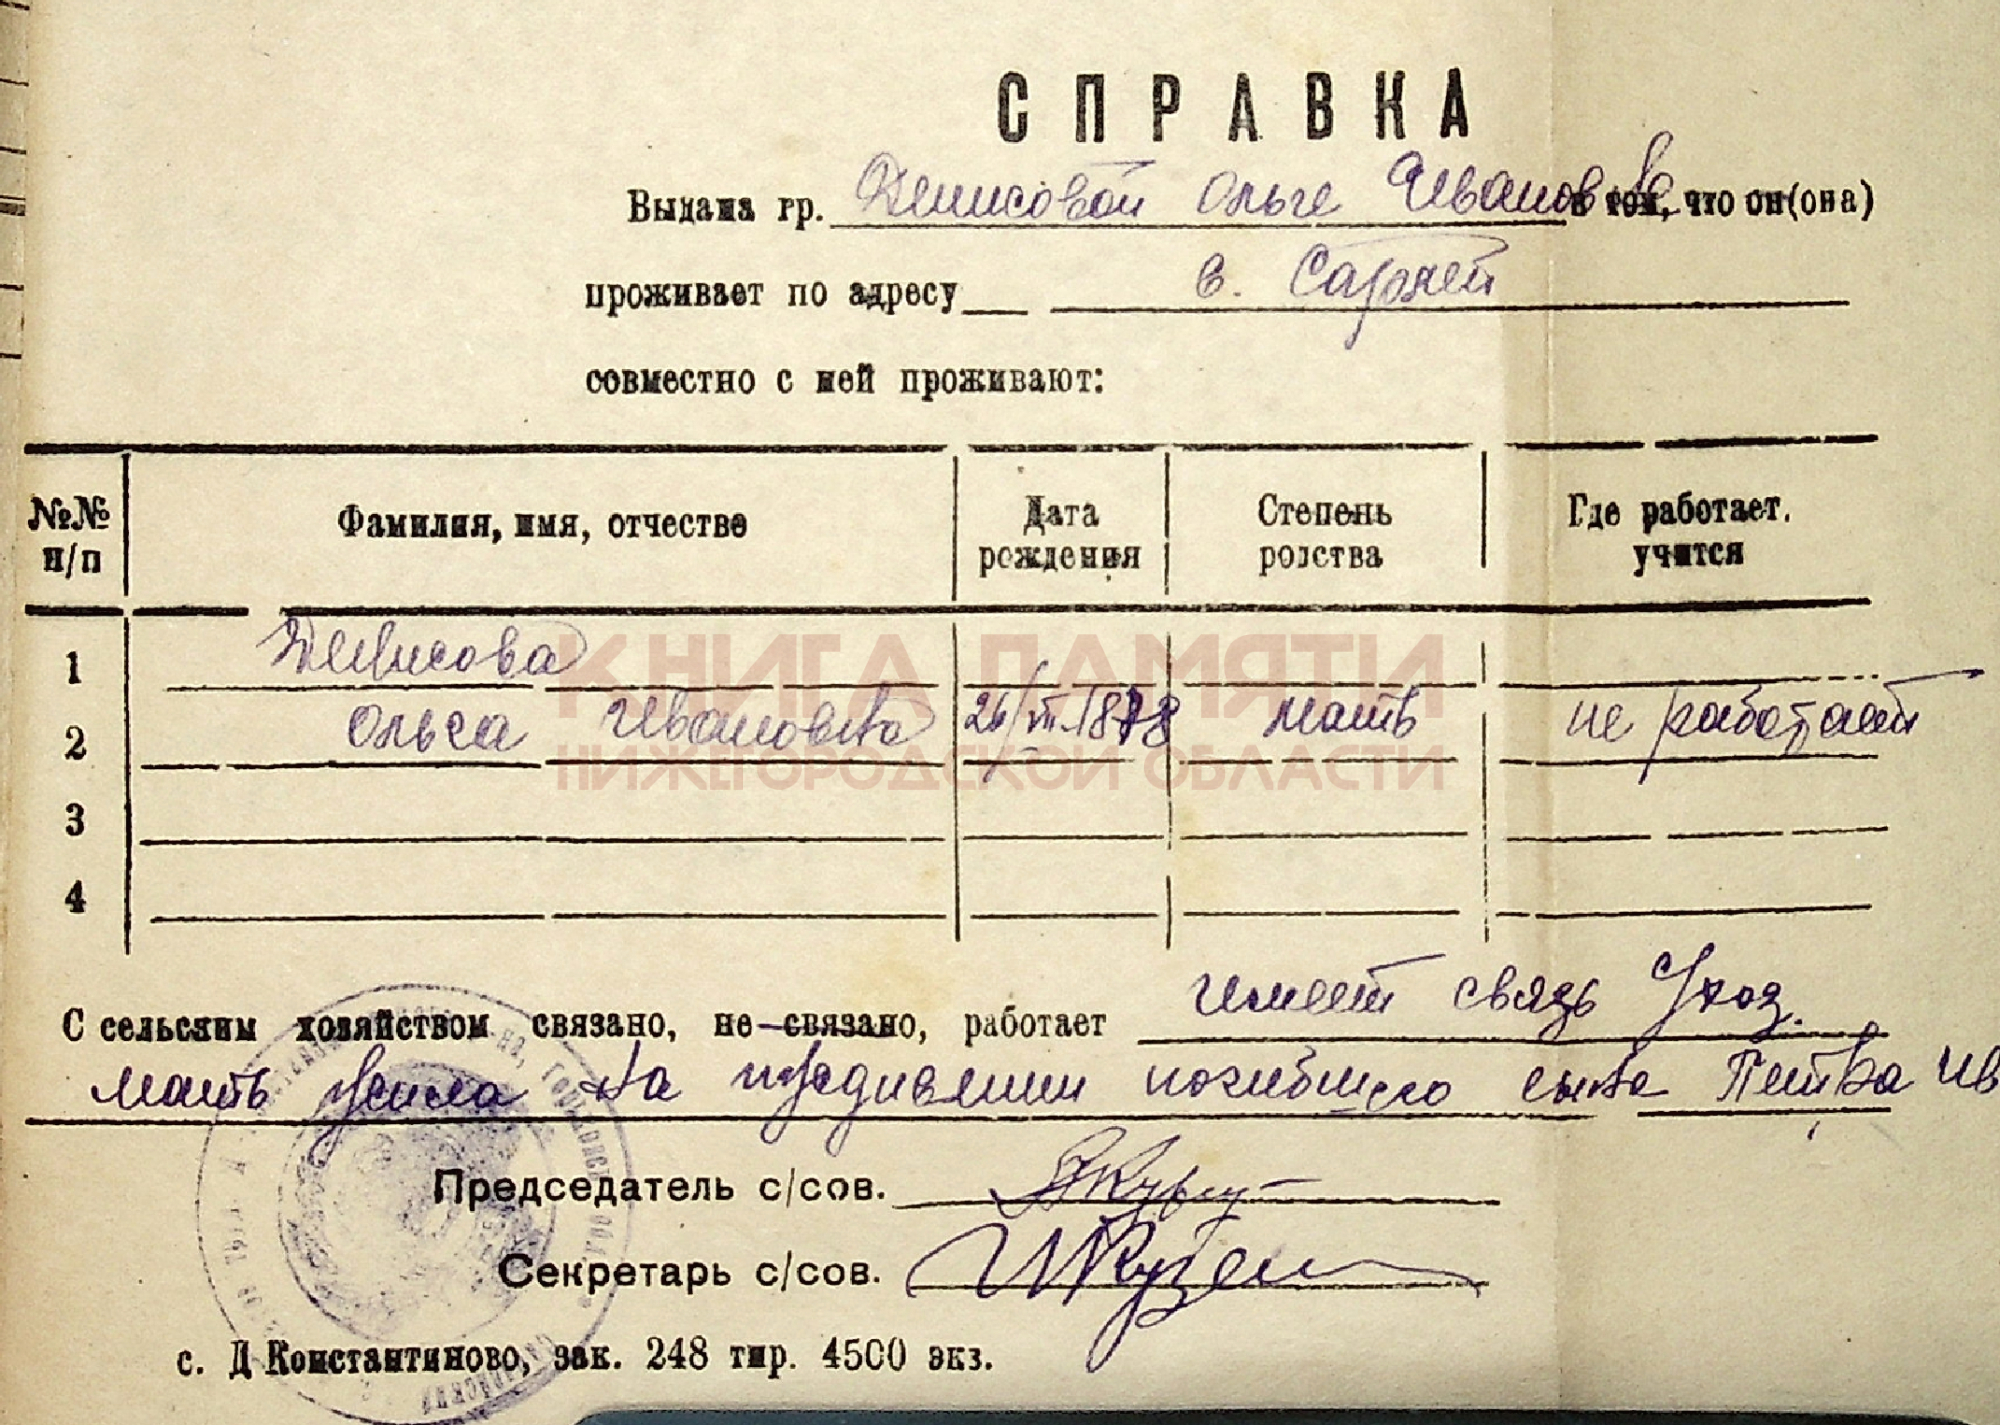 СПРАВКА
Выдана гр. Денисовой Ольге Ивановне в том, что он(она)
проживает по адресу с. Сарлей
совместно с ней проживают:
№№ п/п Фамилия, имя, отчество Дата рождения Степень родства Где работает. учится
1 Денисова
2 Ольга Ивановна 24/VII 1878 мать не работает
3
4
КНИГА ПАМЯТИ
НИЖЕГОРОДСКОЙ ОБЛАСТИ
С сельским хозяйством связано, не связано, работает имеет связь с/хоз.
мать на иждивении погибшего сына Петра Ив
Председатель с/сов.
Секретарь с/сов.
с. Д Константиново, зак. 248 тир. 4500 экз.